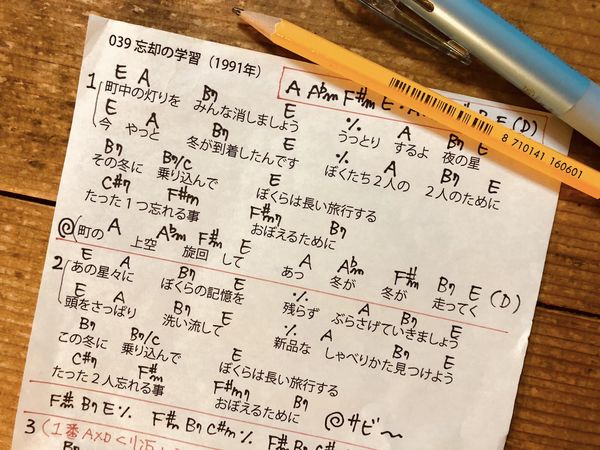 039 忘却の学習（1991年）
A A♭m F#m E
B E (D)
8 710141 160601
1
E A B7 E ％ A B7 E
町中の灯りを みんな消しましょう うっとり するよ 夜の星
E A B7 E ％ A B7 E
今 やっと 冬が到着したんです ぼくたち２人の ２人のために
B7 B7/C E
その冬に 乗り込んで ぼくらは長い旅行する
C#7 F#m F#m7 B7
たった１つ忘れる事 おぼえるために
@ A A♭m F#m E A A♭m F#m B7 E (D)
町の 上空 旋回 して あっ 冬が 冬が 走ってく
2
E A B7 E ％ A B7 E
あの星々に ぼくらの記憶を 残らず ぶらさげていきましょう
E A B7 E ％ A B7 E
頭をさっぱり 洗い流して 新品な しゃべりかた見つけよう
B7 B7/C E
この冬に 乗り込んで ぼくらは長い旅行する
C#7 F#m F#m7 B7
たった２人忘れる事 おぼえるために @サビ〜
F#m B7 E ％ F#m B7 C#m ％ F#m B7
3 (1番AメロくりXX
B7